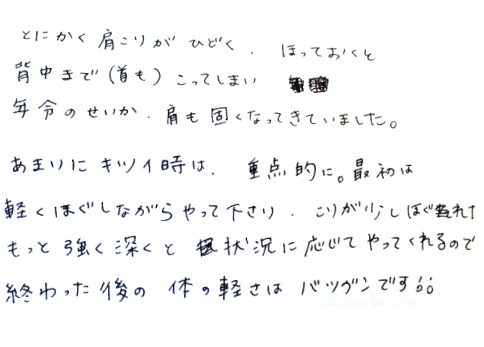 とにかく肩こりがひどく、ほっておくと
背中まで(首も)こってしまい
年令のせいか、肩も固くなってきていました。
あまりにキツイ時は、重点的に。最初は
軽くほぐしながらやって下さり、こりが少しほぐれた
もっと強く深くと状況に応じてやってくれるので
終わった後の体の軽さはバツグンです!!